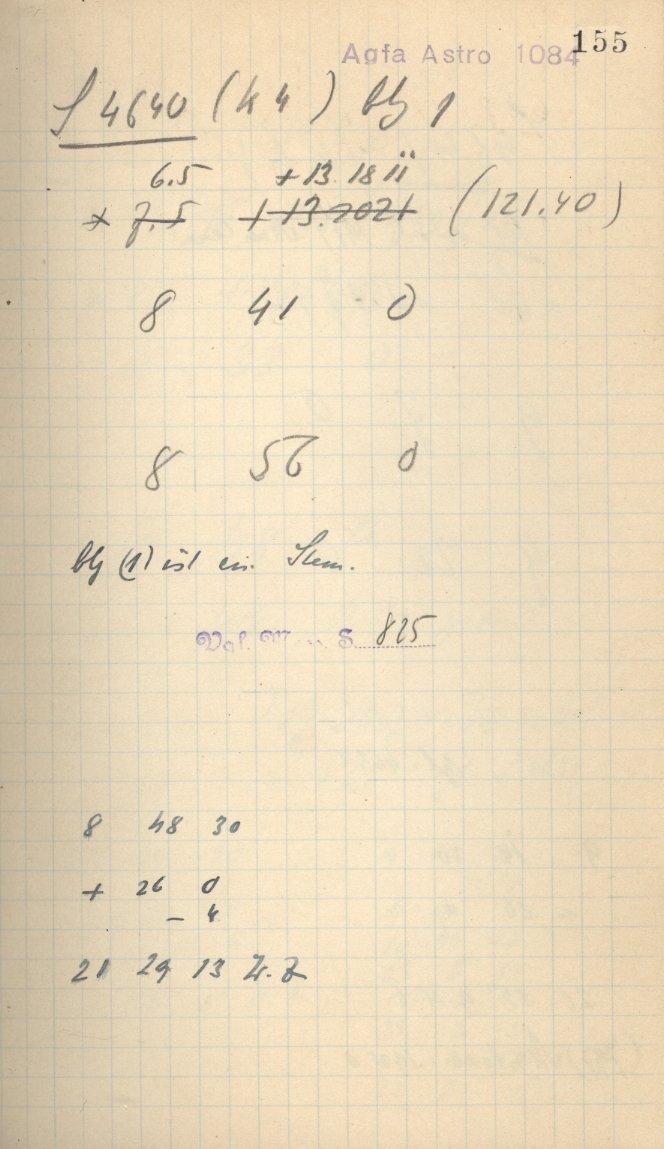 155
Agfa Astro 1084
S 4640 (k 4) blg 1
6.5 +13. 18 11
7.5 +13.2021 (121.40)
8 41 0
8 56 0
blg (1) ist ein Stern.
Vgl. S. 825
8 48 30
+ 26 0
- 4
21 29 13